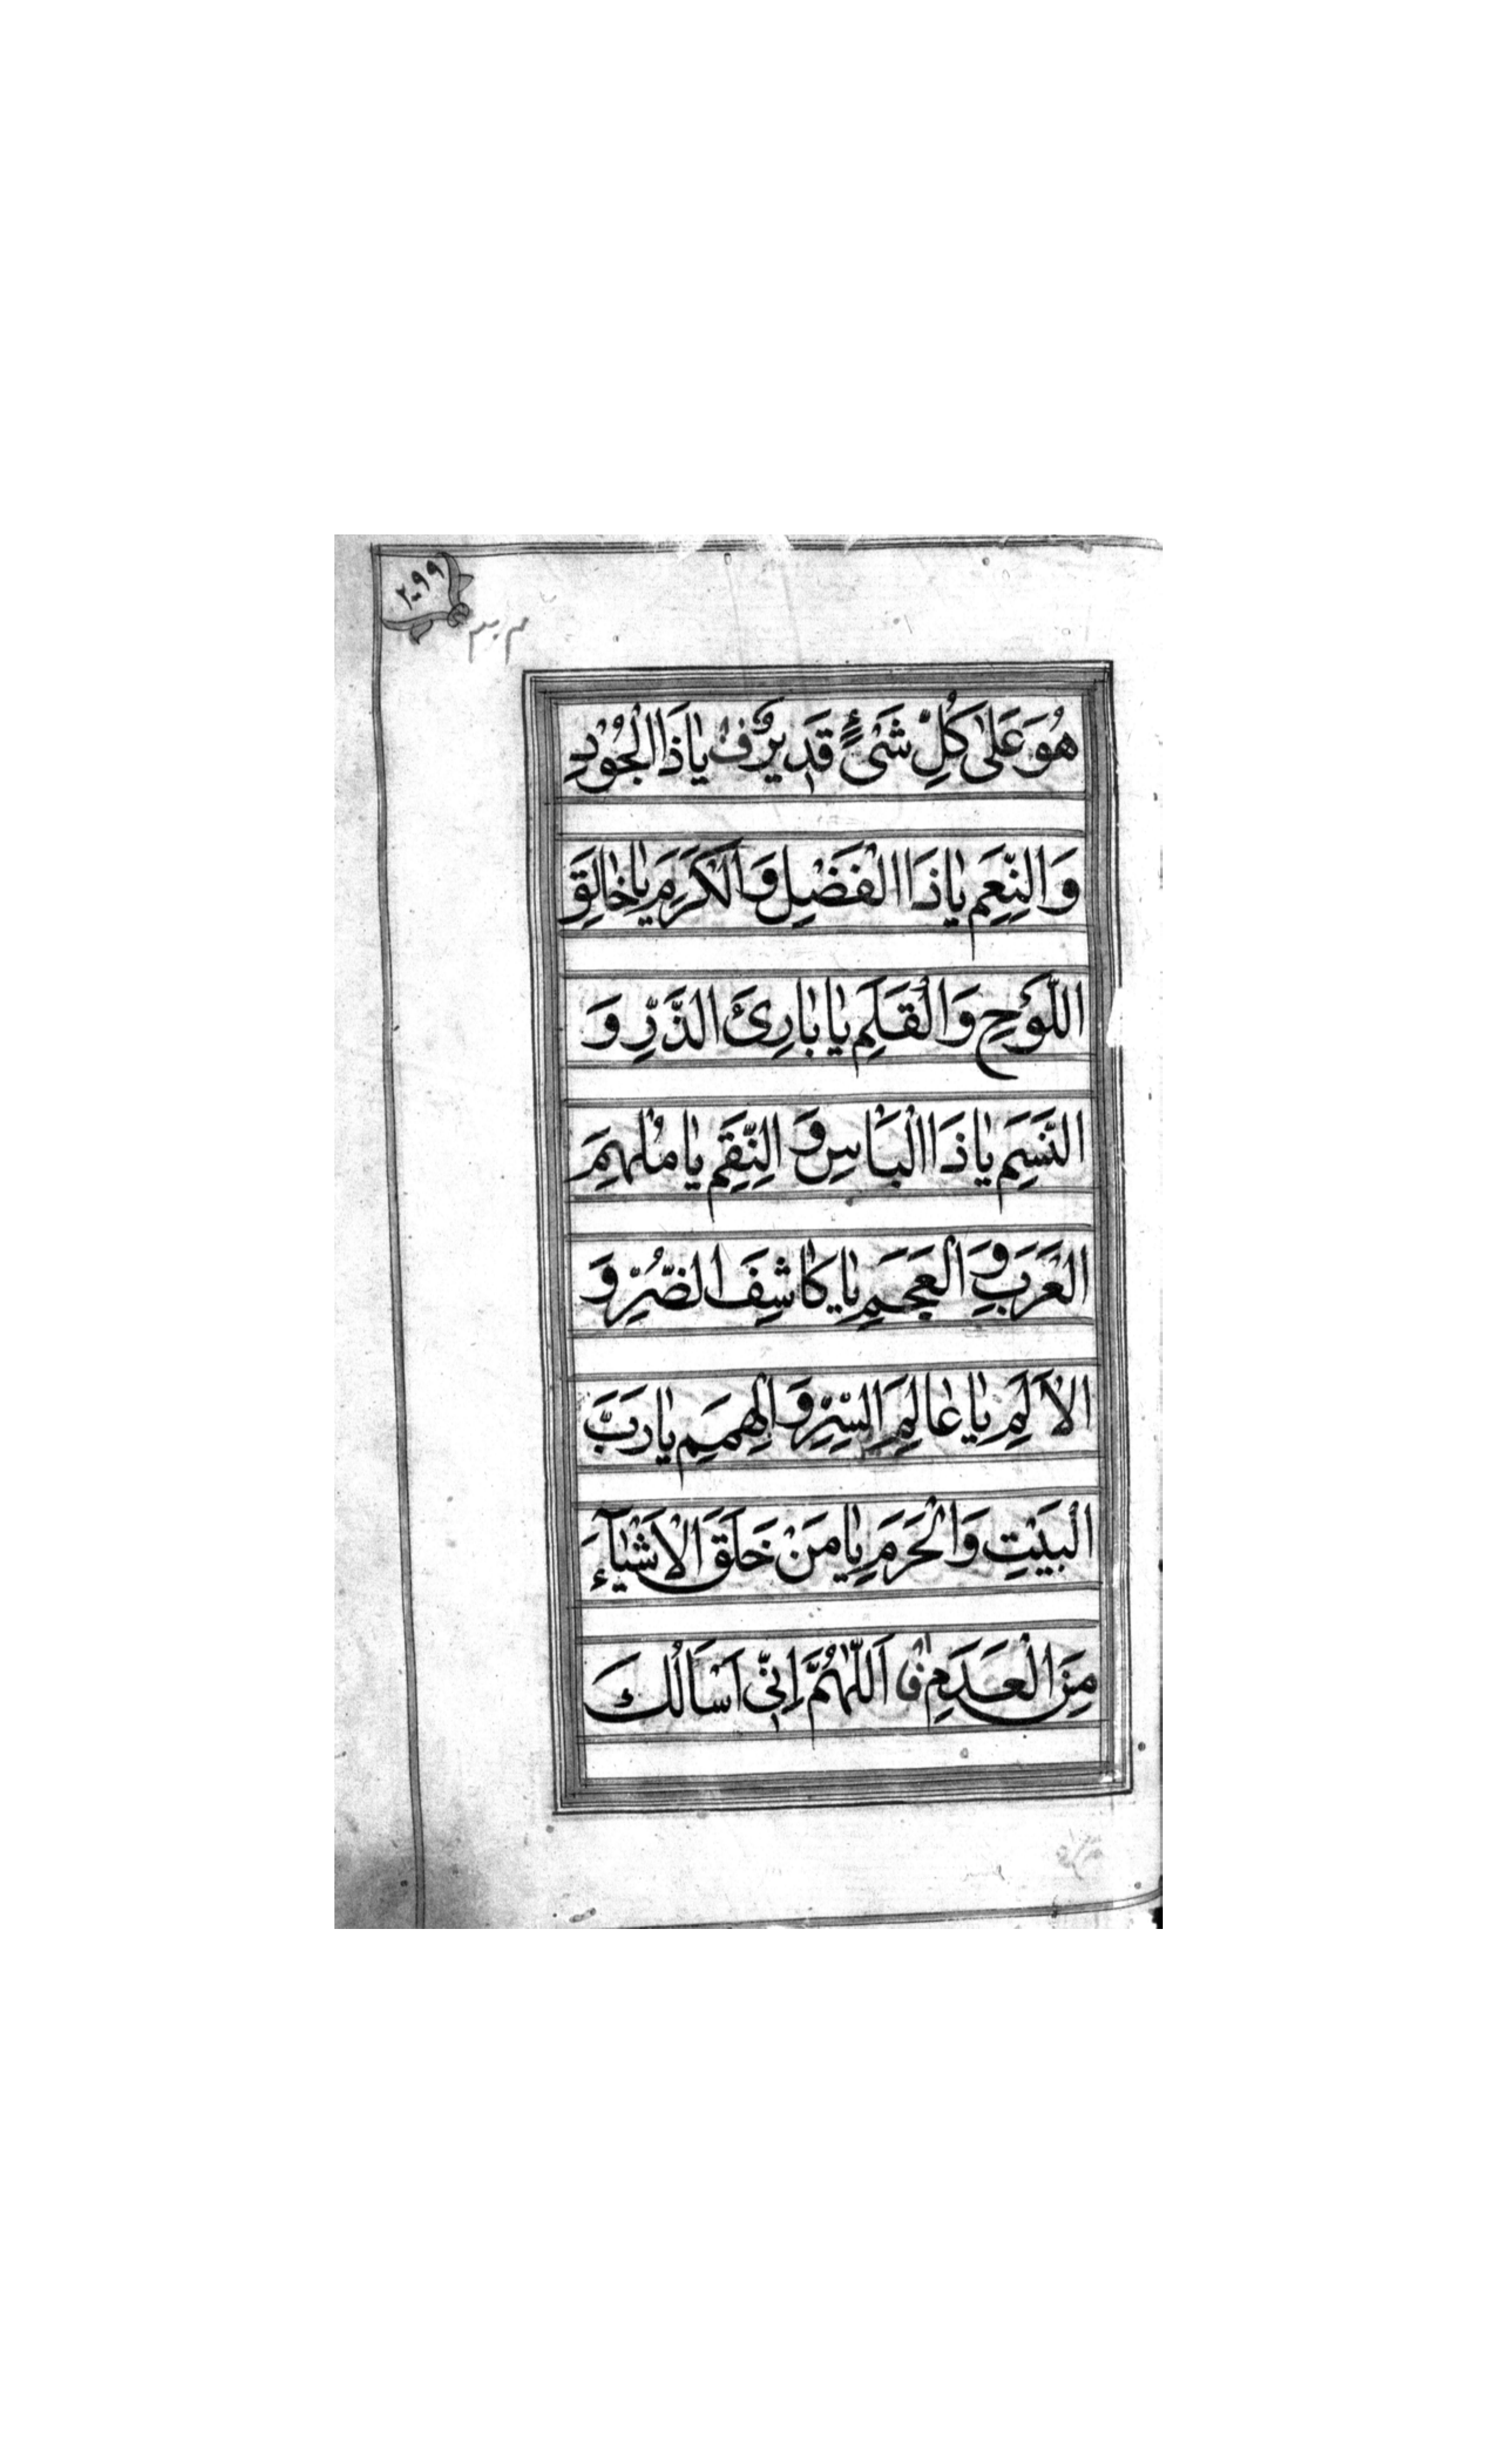 ۲۰۹۹
۳۰۳
هُوَ عَلىٰ كُلِّ شَیْءٍ قَدِيرٌ ف يٰا ذَا الْجُوْدِ
وَالنِّعَمِ يٰا ذَا الْفَضْلِ وَالْكَرَمِ يٰا خٰالِقَ
اللَّوْحِ وَالْقَلَمِ يٰا بٰارِئَ الذَّرِّ وَ
النَّسَمِ يٰا ذَا الْبَاْسِ وَ النِّقَمِ يٰا مُلْهِمَ
الْعَرَبِ وَ الْعَجَمِ يٰا كٰاشِفَ الضُّرِّ وَ
الْاَلَمِ يٰا عٰالِمَ السِّرِّ وَ الْهِمَمِ يٰا رَبَّ
الْبَيْتِ وَالْحَرَمِ يٰا مَنْ خَلَقَ الْاَشْيٰآءَ
مِنَ الْعَدَمِ ف اَللّٰهُمَّ اِنِّی اَسْاَلُكَ